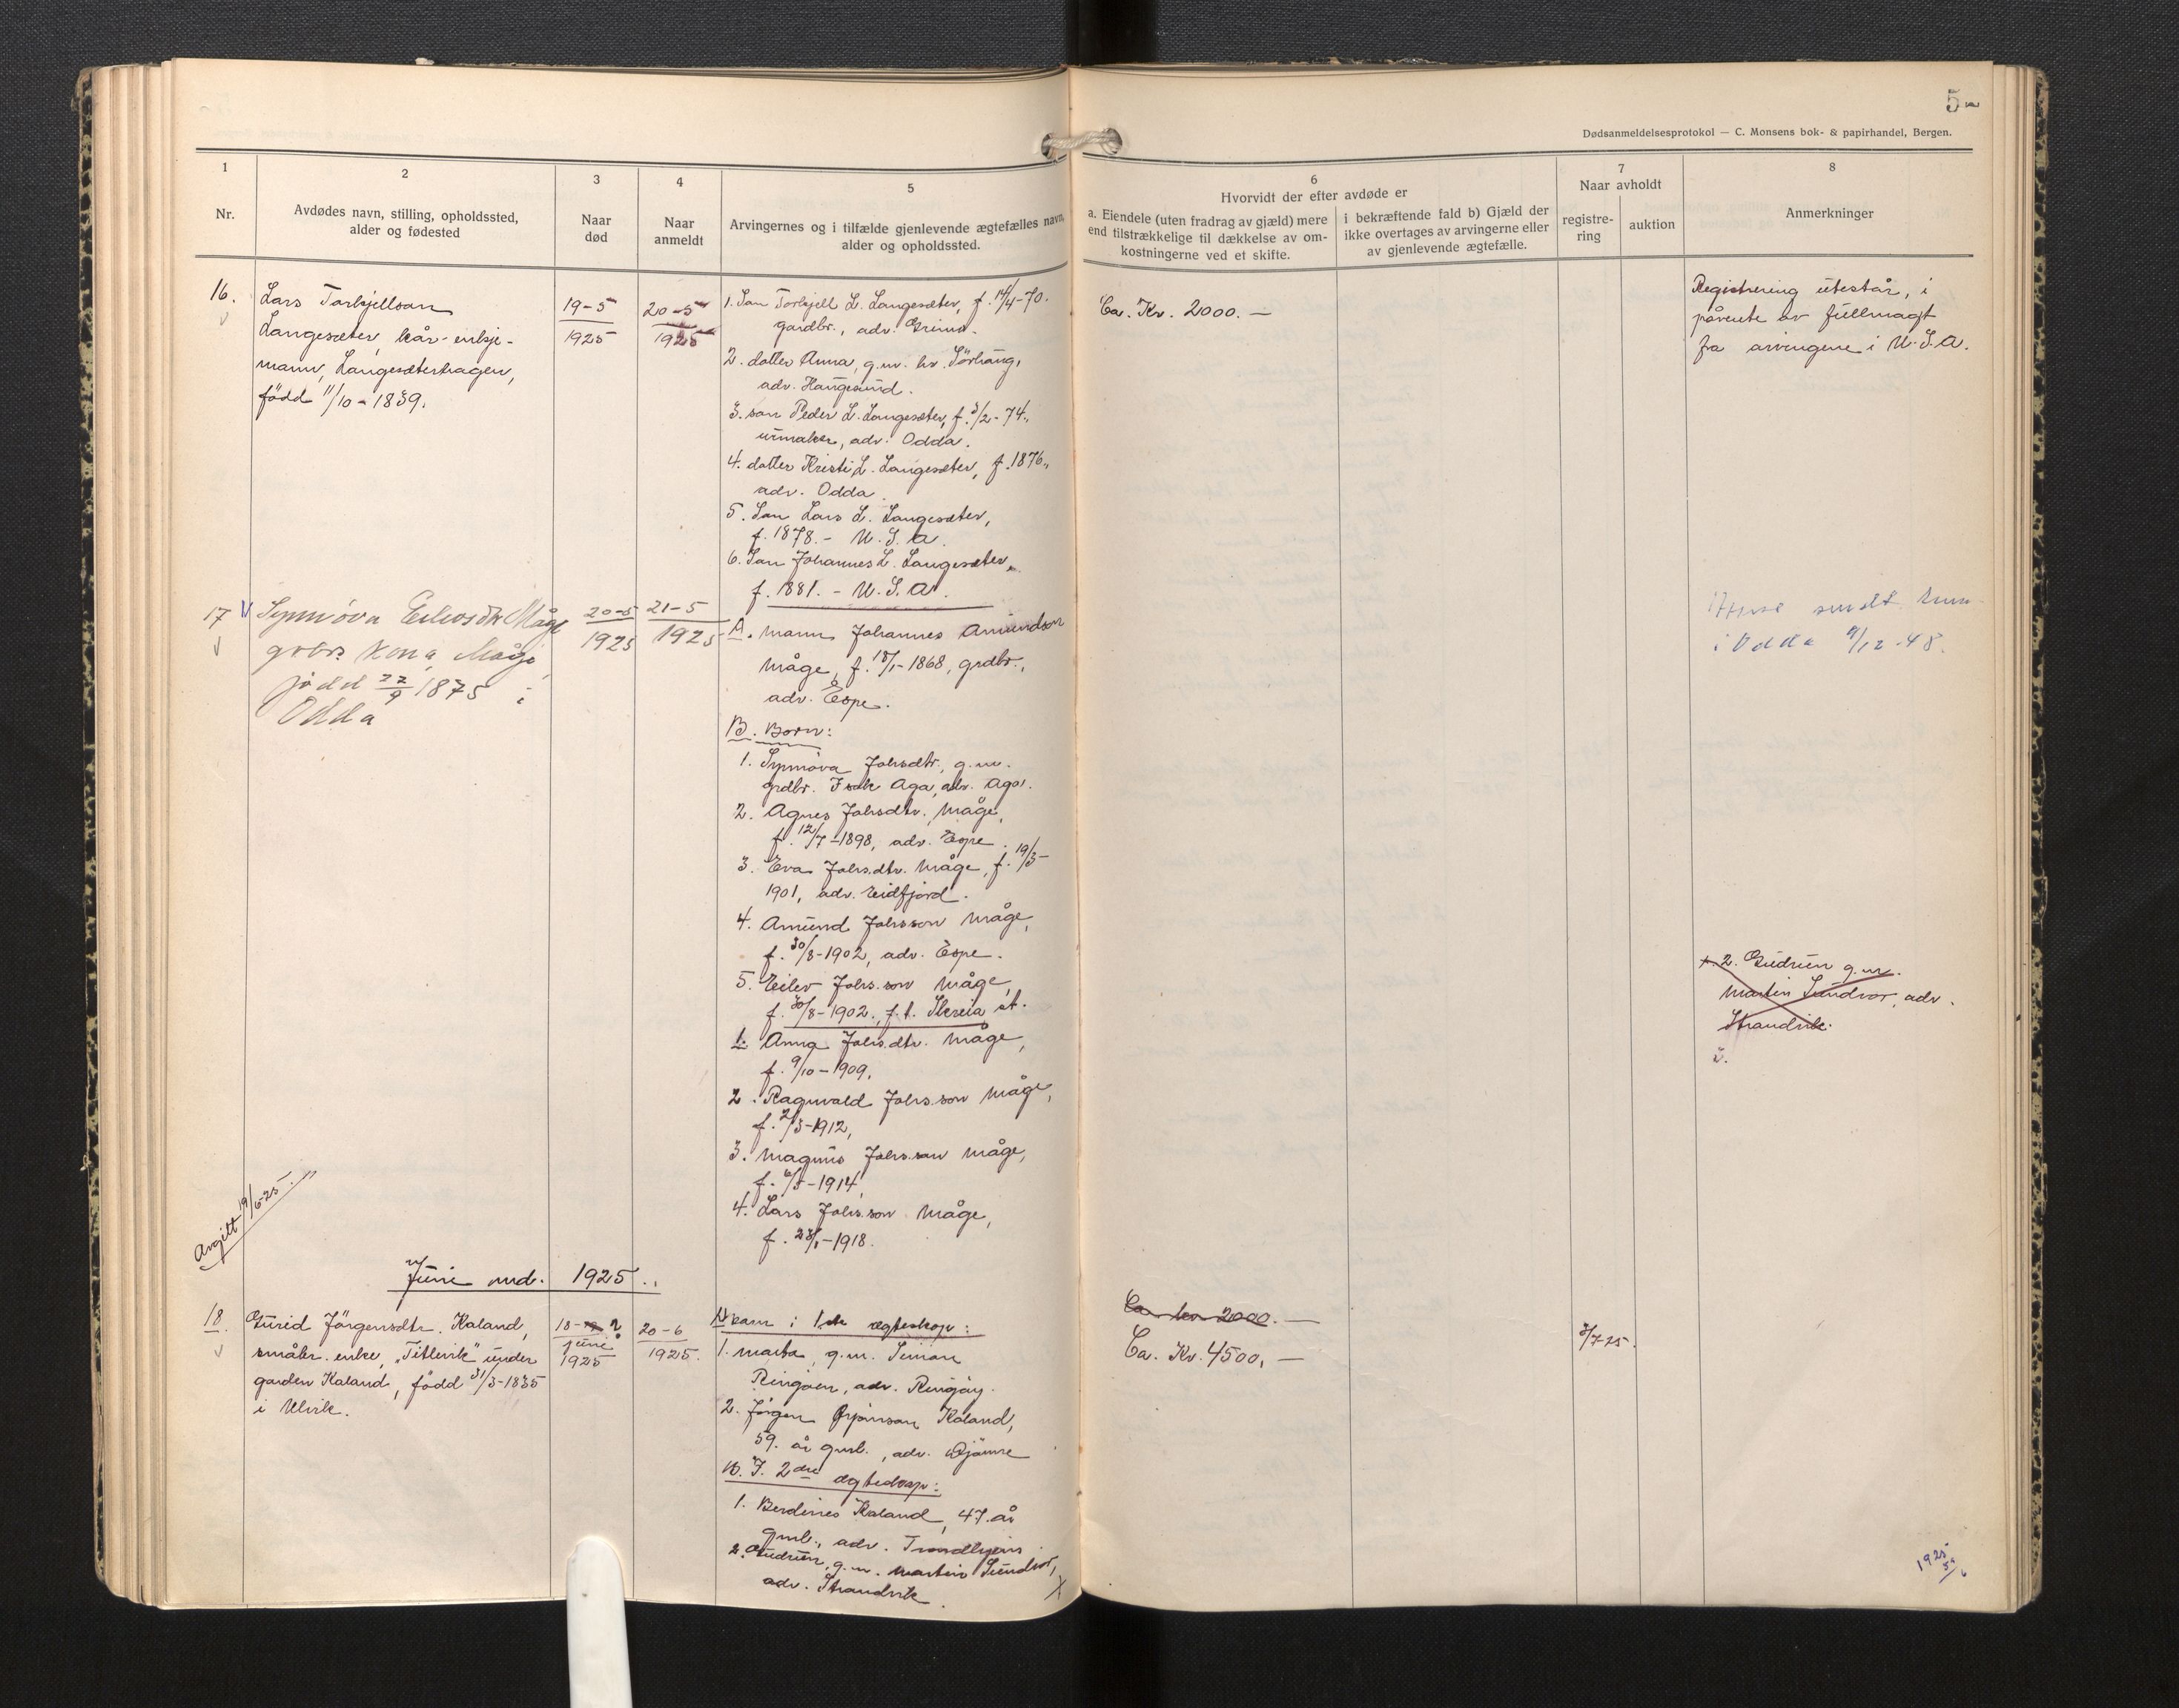 5-
Dødsanmeldelsesprotokol — C. Monsens bok- & papirhandel, Bergen.
1
Nr.
2
Avdødes navn, stilling, opholdssted,
alder og fødested
3
Naar
død
4
Naar
anmeldt
5
Arvingernes og i tilfælde gjenlevende ægtefælles navn,
alder og opholdssted.
6
Hvorvidt der efter avdøde er
a. Eiendele (uten fradrag av gjæld) mere
end tilstrækkelige til dækkelse av om-
kostningerne ved et skifte.
i bekræftende fald b) Gjæld der
ikke overtages av arvingerne eller
av gjenlevende ægtefælle.
7
Naar avholdt
registre-
ring
auktion
8
Anmerkninger
16.
Lars Torkjellson
Langesæter, kår-enkje-
mann, Langesæterhagen,
född 11/10-1839.
19-5
1925
20-5
1925
1. Son Torkjell L. Langesæter, f. 14/4-70.
gardbr., adr. Grimo.
2. dotter Anna, g.m. hr. Sörhaug,
adr. Haugesund.
3. son Peder L. Langesæter, f. 3/2-74.,
urmaker, adr. Odda.
4. dotter Kristi L. Langesæter, f. 1876.,
adr. Odda.
5. Son Lars L. Langesæter,
f. 1878. - U.S.A.
6. Son Johannes L. Langesæter,
f. 1881. - U.S.A.
Ca. Kr. 2000. —
Registrering utestår, i
påvente av fullmagt
fra arvingene i U.S.A.
17
Synnöva Eilivsdtr Måge
grbr. kona, Måge,
född 22/9 1875 i
Odda
20-5
1925
21-5
1925
A. Mann Johannes Amundson
Måge, f. 18/1-1868, grdbr.,
adr. Espe.
B. Born:
1. Synnöva Johsdtr., g.m.
grdbr. Isak Aga, adr. Aga.
2. Agnes Johsdtr. Måge,
f. 12/7-1898, adr. Espe.
3. Eva Johs.dtr. Måge, f. 19/3-
1901, adr. Eidfjord.
4. Amund Johsson Måge,
f. 30/8-1902, adr. Espe.
5. Eilev Johs.son Måge,
f. 30/8-1902., f.t. st.
1. Anna Johs.dtr. Måge,
f. 9/10-1909.
2. Ragnvald Johs.son Måge,
f. 2/3-1912,
3. Magnus Johs.son Måge,
f. 6/5-1914,
4. Lars Johs.son Måge,
f. 23/1-1918.
sendt
i Odda 9/12-48.
x. 2. Gudrun g.m.
Martin Sundvor, adr.
Strandvik.
2.
Avgitt 19/6-25.
Juni md. 1925.
18.
Gurid Jörgensdtr. Kaland,
småbr. enke, "Titlevik" under
garden Kaland, född 31/3-1835
i Ulvik.
18-?
juni
1925
20-6
1925.
A. barn i 1ste egteskap:
1. Marta, g.m. Simon
Ringöen, adr. Ringöy.
2. Jörgen Kaland,
59. år gml., adr.
B. I. 2dre egteskap:
1. Berdines Kaland, 47. år
gml., adr. Trondhjem
2. Gudrun, g.m. Martin Sundvor,
adr. Strandvik.
Ca. kr. 2000. —
Ca. Kr. 4500, —
3/7-25.